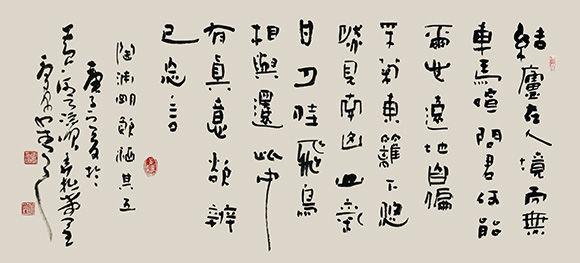 結廬在人境而無
車馬喧問君何能
爾心遠地自偏
采菊東籬下悠
然見南山山氣
日夕佳飛鳥
相與還此中
有真意欲辨
已忘言
陶淵明飲酒其五
庚子之夏於